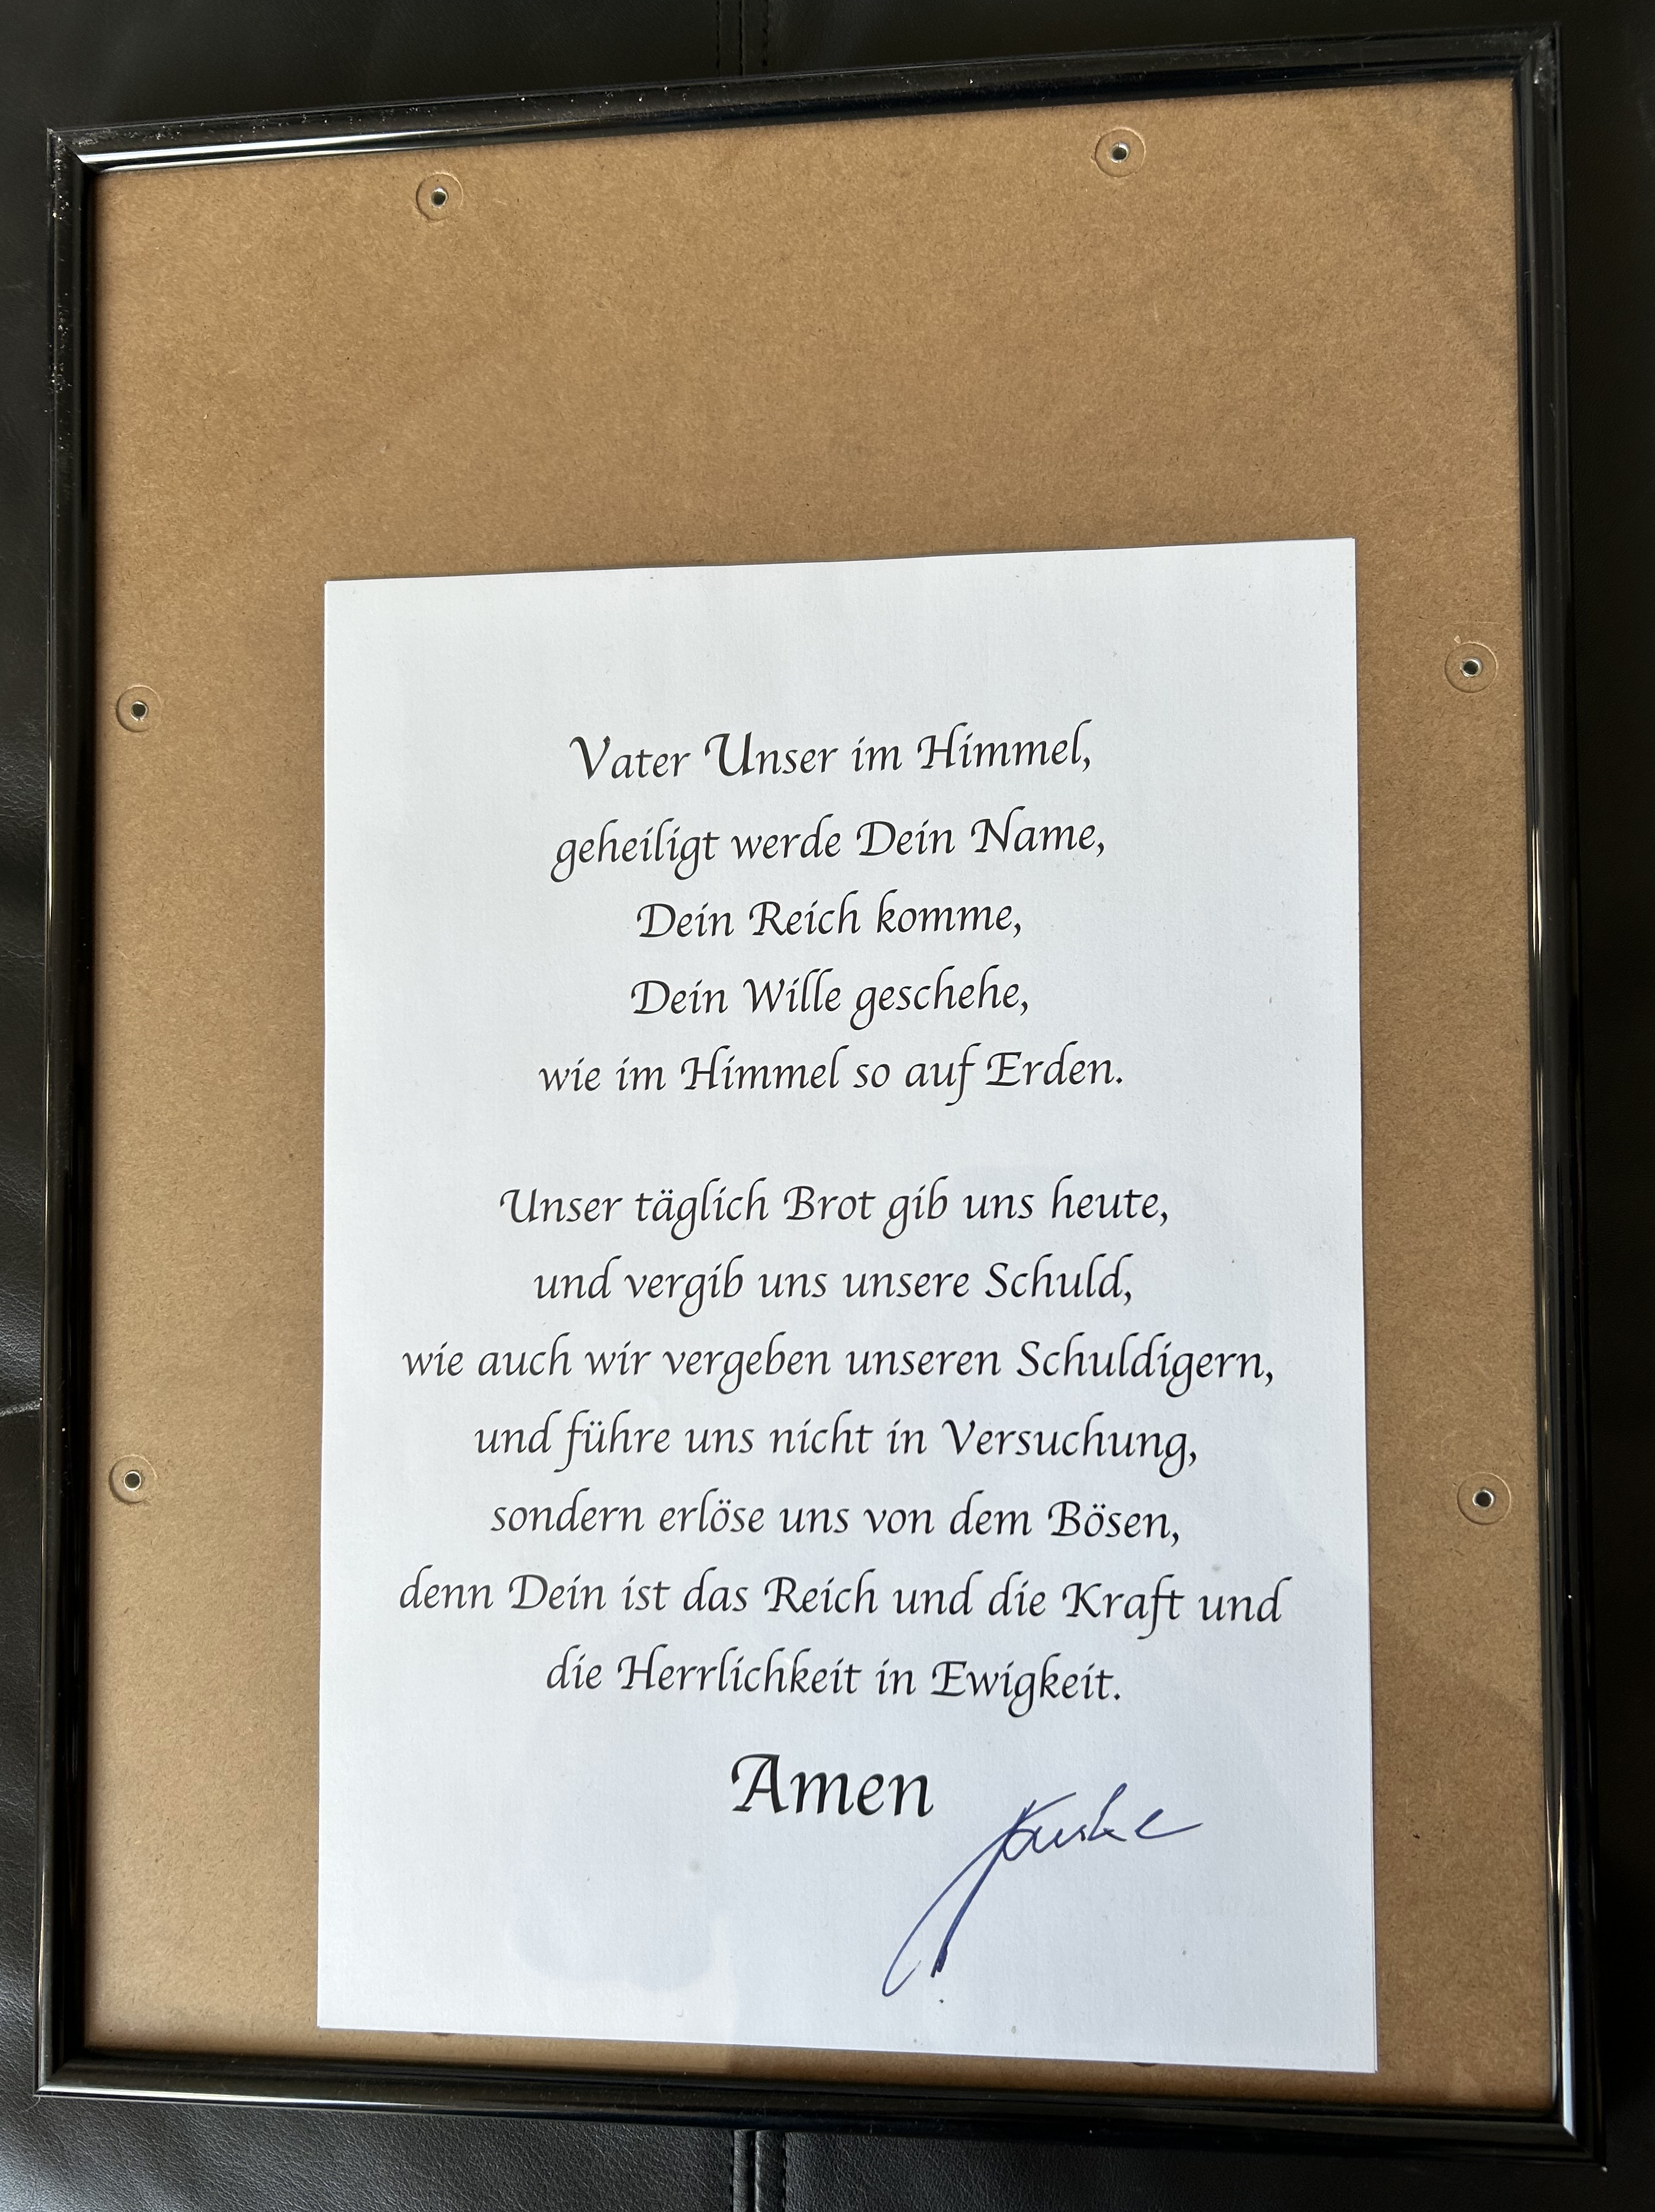 Vater Unser im Himmel,
geheiligt werde Dein Name,
Dein Reich komme,
Dein Wille geschehe,
wie im Himmel so auf Erden.
Unser täglich Brot gib uns heute,
und vergib uns unsere Schuld,
wie auch wir vergeben unseren Schuldigern,
und führe uns nicht in Versuchung,
sondern erlöse uns von dem Bösen,
denn Dein ist das Reich und die Kraft und
die Herrlichkeit in Ewigkeit.
Amen